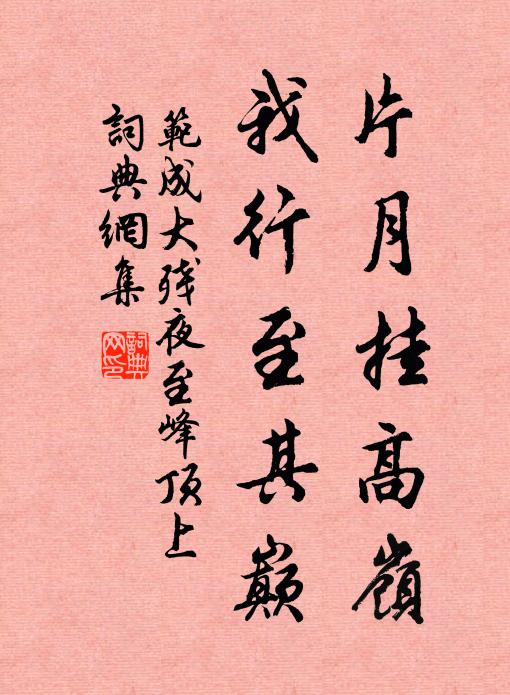 片月挂高嶺
我行至其巔
範成大残夜至峰顶上
詞典網集
詞典
网印